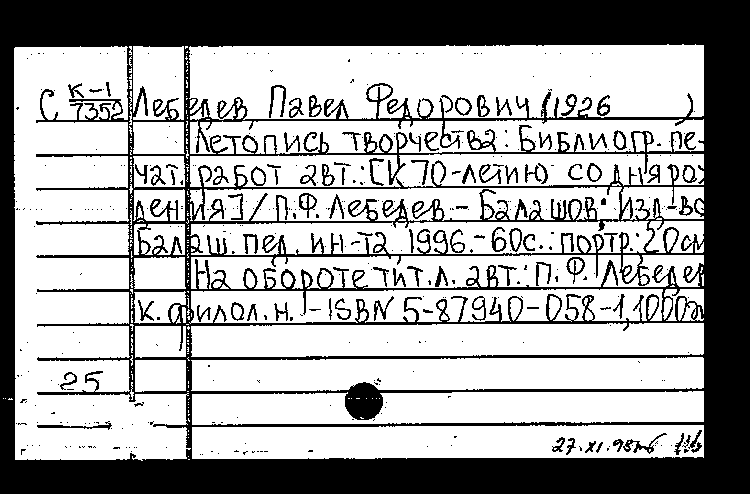 С К-1/7352 Лебедев, Павел Федорович (1926 )
Летопись творчества: Библиогр. пе-
чат. работ авт.: [К 70-летию со дня рож
дения] / П.Ф. Лебедев. - Балашов: Изд-во
Балаш. пед. ин-та, 1996. - 60с.: портр.; 20см
На обороте тит. л. авт.: П. Ф. Лебедев
к. филол. н. - ISBN 5-87940-058-1, 1000э
25
27.XI.98